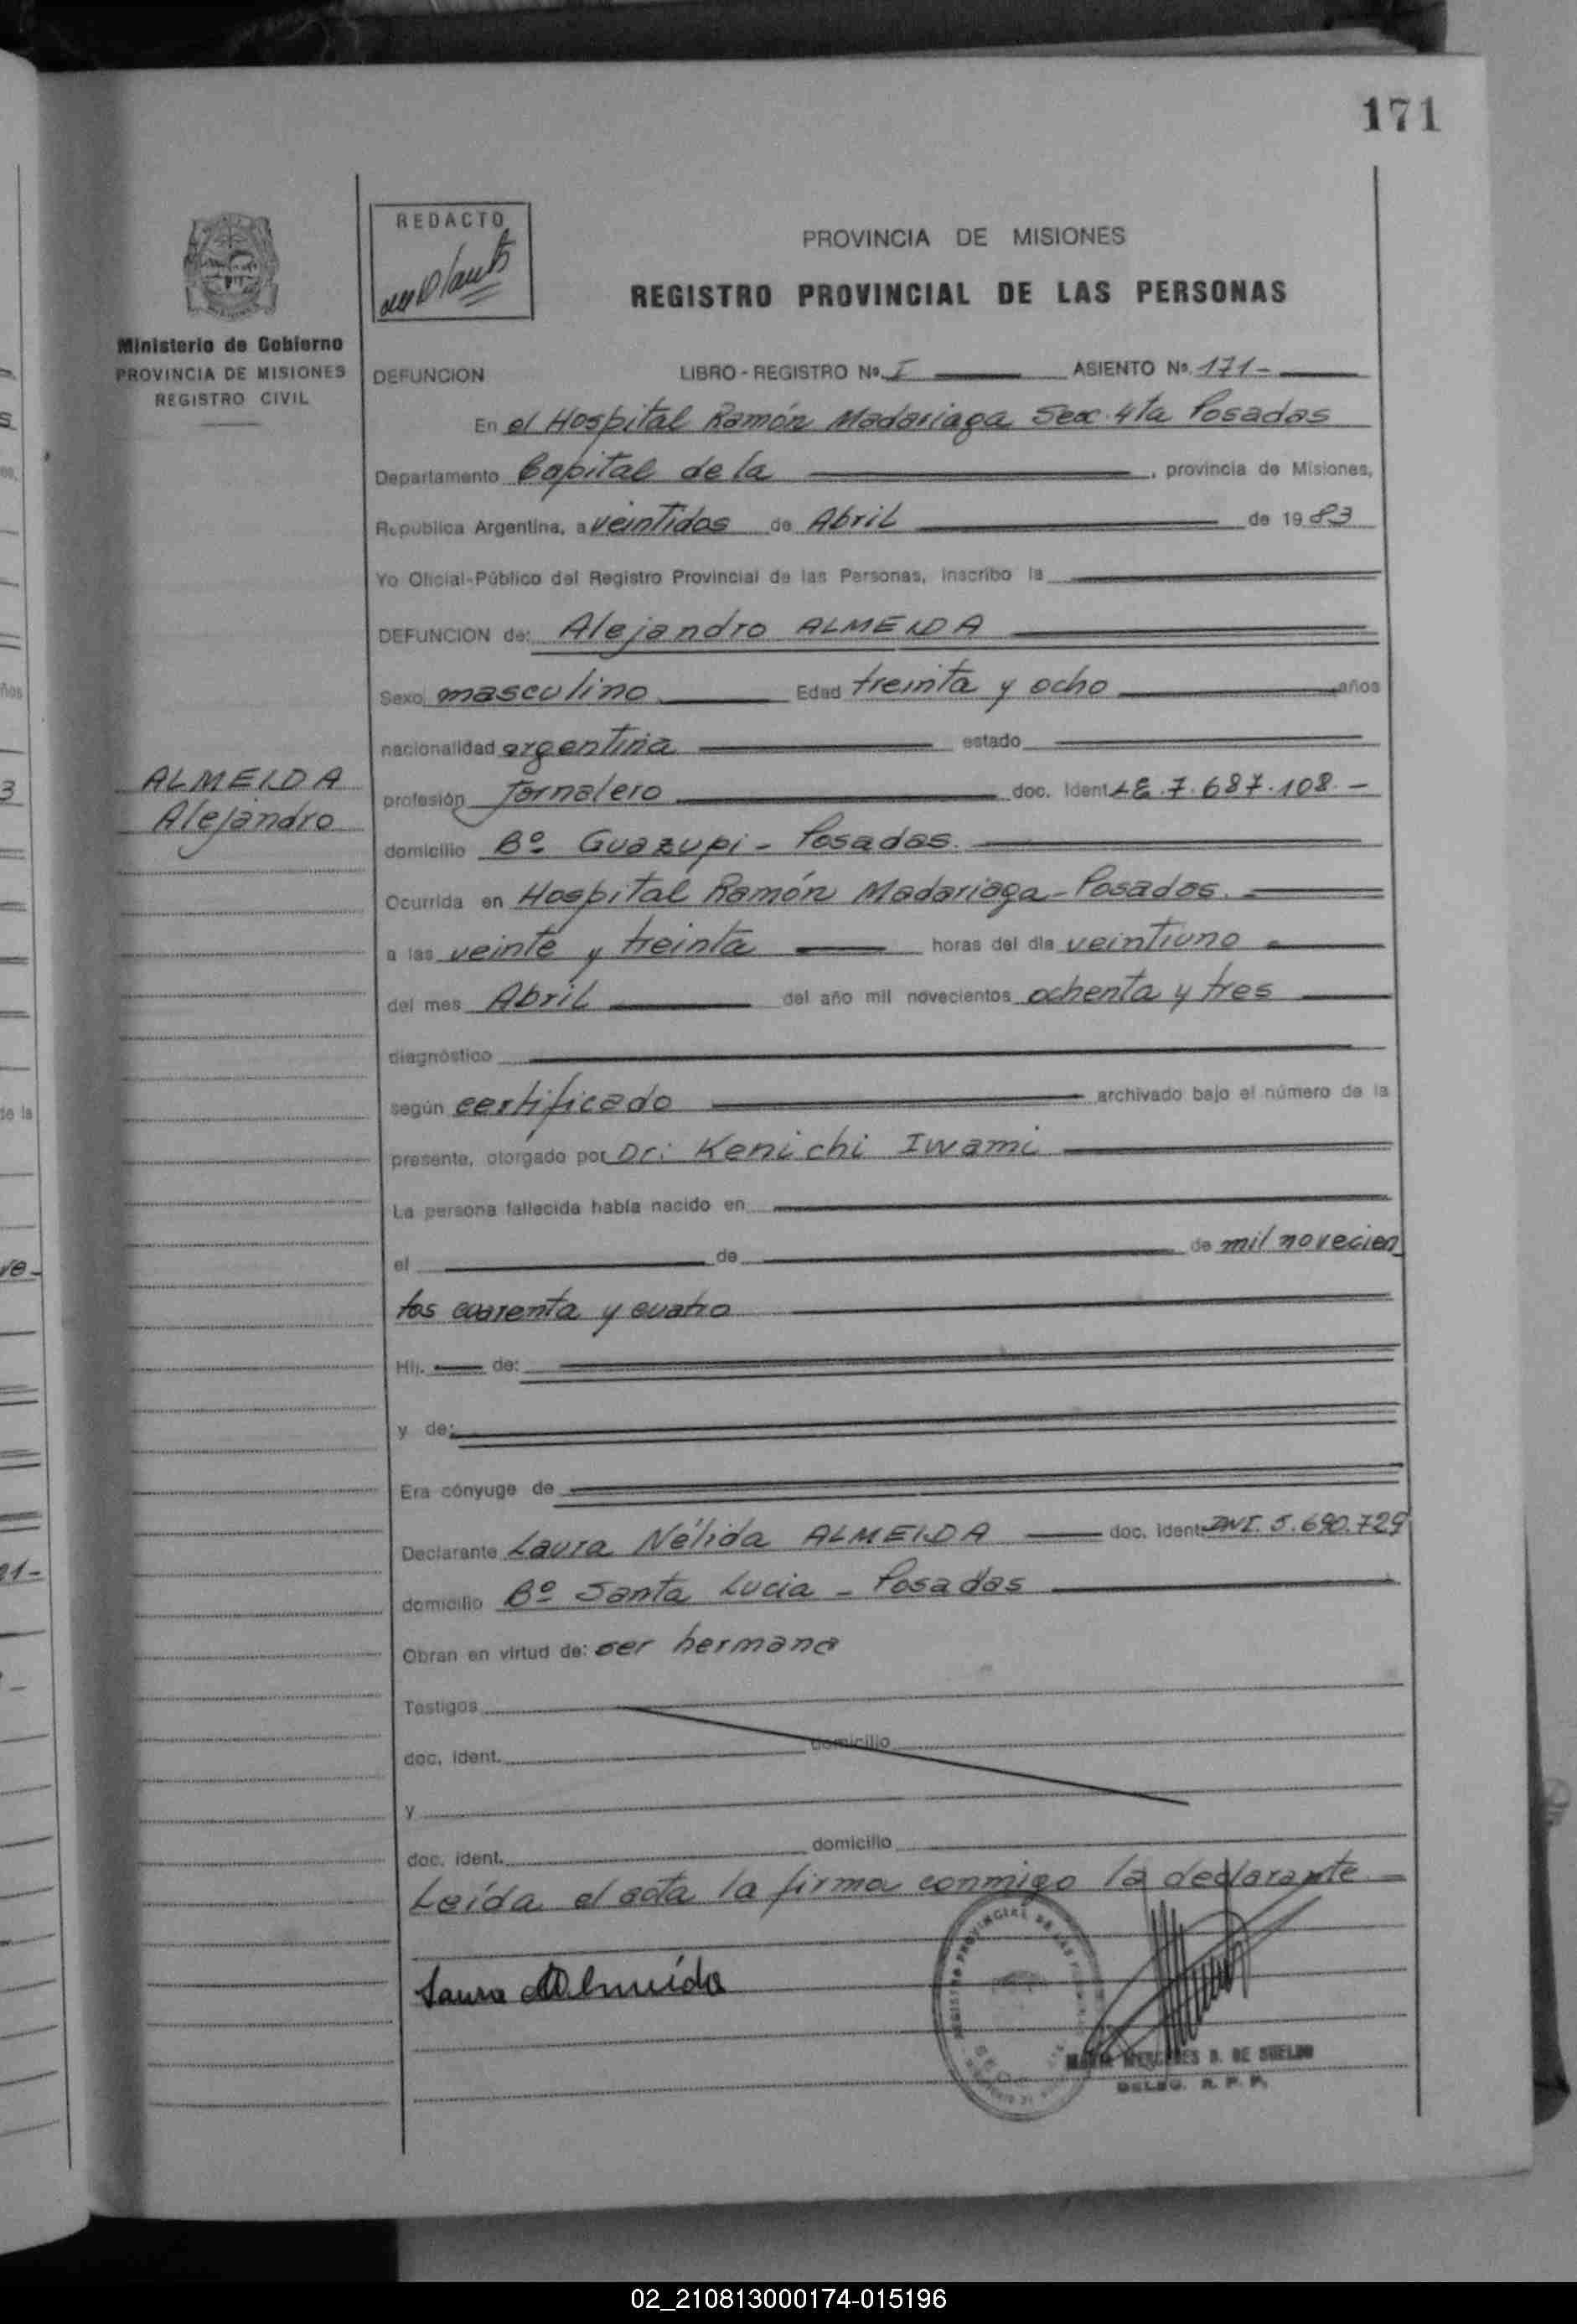 171
REDACTO
PROVINCIA DE MISIONES
REGISTRO PROVINCIAL DE LAS PERSONAS
Ministerio de Gobierno
PROVINCIA DE MISIONES
REGISTRO CIVIL
DEFUNCION LIBRO - REGISTRO Nº. I ASIENTO Nº. 171-
En el Hospital Ramón Madariaga Sec. 4ta Posadas
Departamento Capital de la , provincia de Misiones,
República Argentina, a veintidos de Abril de 1983
Yo Oficial-Público del Registro Provincial de las Personas, inscribo la
DEFUNCION de: Alejandro ALMEIDA
Sexo masculino Edad treinta y ocho años
nacionalidad argentina estado
ALMEIDA
Alejandro
profesión Jornalero doc. Ident. LE. 7.687.108.-
domicilio Bº Guazupi - Posadas.
Ocurrida en Hospital Ramón Madariaga - Posadas.
a las veinte y treinta horas del día veintiuno
del mes Abril del año mil novecientos ochenta y tres
diagnóstico
según certificado archivado bajo el número de la
presente, otorgado por Dr: Kenichi Iwami
La persona fallecida había nacido en
el de de mil novecien
tos cuarenta y cuatro
Hij. de:
y de:
Era cónyuge de
Declarante Laura Nélida ALMEIDA doc. Ident. DNI. 5.690.729
domicilio Bº Santa Lucia - Posadas
Obran en virtud de: ser hermana
Testigos
doc. ident. domicilio
y
doc. ident. domicilio
Leída el acta la firma conmigo la declarante
Laura Almeida
REGISTRO PROVINCIAL DE LAS
MARIA MERCEDES D. DE SUELDO
DELEG. R. P. P.
02_210813000174-015196